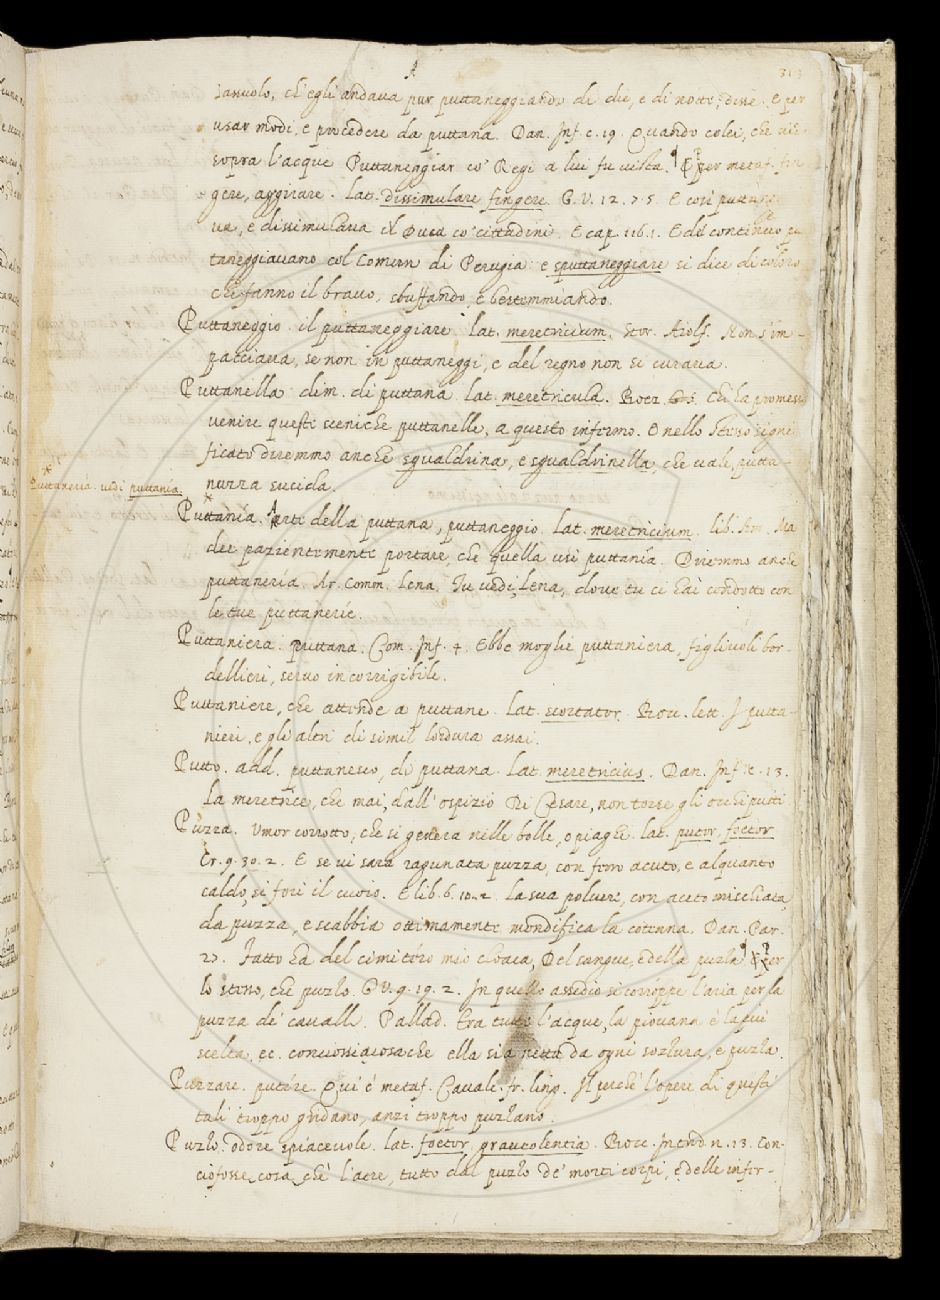 313
A
ch'egli andaua pur puttaneggiando di die, e di notte: disse. E per
usar modi, e procedere da puttana. Dan. Inf. c. 19. Quando colei, che
sopra l'acque Puttaneggiar co' Regi a lui fu vista. per metaf.
gere, aggirare. lat. dissimulare fingere. G. V. 12. 7. 5. E così
ua, e dissimulaua il Duca co' cittadini. E cap. 116. 1. E del continuo
taneggiauano col Comun di Perugia e sputtaneggiare si dice di coloro
che fanno il brauo, sbuffando, e bestemmiando.
Puttaneggio. il puttaneggiare. lat. meretricium. Stor. Aiolf. Non s'im-
pacciaua, se non in puttaneggi, e del regno non si curaua.
Puttanella. dim. di puttana. lat. meretricula. Bocz. Chi la promesso
venire queste sceniche puttanelle, a questo infermo. O nello stesso signi
ficato diremmo anche sgualdrina, e sgualdrinella, che uale, putta-
nuzza sucida.
Puttaneria. vedi puttanía.
Puttanía. Arti della puttana, puttaneggio. lat. meretricium. lib. Am. Ma
dee pazientemente portare, che quella usi puttanía. Diremmo anche
puttanería. Ar. Comm. Lena. Tu uedi, Lena, doue tu ci hai condotto con
le tue puttanerie.
Puttaniera. puttana. Com. Inf. 4. Ebbe moglie puttaniera, figliuoli bor-
dellieri, seruo incorrigibile.
Puttaniere, che attende a puttane. lat. scortator. Bocc. lett. I putta-
nieri, e gli altri di simil lordura assai.
Putto. add. puttanesco, di puttana. lat. meretricius. Dan. Inf. c. 13.
La meretrice, che mai, dall'ospizio Di Cesare, non torse gli occhi putti.
Puzza. Vmor corrotto, che si genera nelle bolle, o piaghe. lat. putor, foetor
Cr. 9. 30. 2. E se ui sarà ragunata puzza, con ferro acuto, e alquanto
caldo, si fori il cuoio. E lib. 6. 10. 2. La sua poluere, con aceto mischiata,
da puzza, e scabbia ottimamente mondifica la cotenna. Dan. Par.
27. Fatto ha del cimitéro mio cloaca, Del sangue, e della puzza per
lo stesso, che puzzo. G. V. 9. 19. 2. In quello assedio si corroppe l'aria per la
puzza de' caualli. Pallad. Era tutte l'acque, la piouana è la piú
scelta, ec. conciossiacosache ella sia netta da ogni sozzura, e puzza.
Puzzare. putére. Qui é metaf. Caualc. fr. ling. Il perchè l'opere di questi
tali troppo gridano, anzi troppo puzzano.
Puzzo. odore spiaceuole. lat. foetor, graueolentia. Bocc. Introd. n. 13. Con-
ciofosse cosa che l'aere, tutto dal puzzo de' morti corpi, e delle infer-